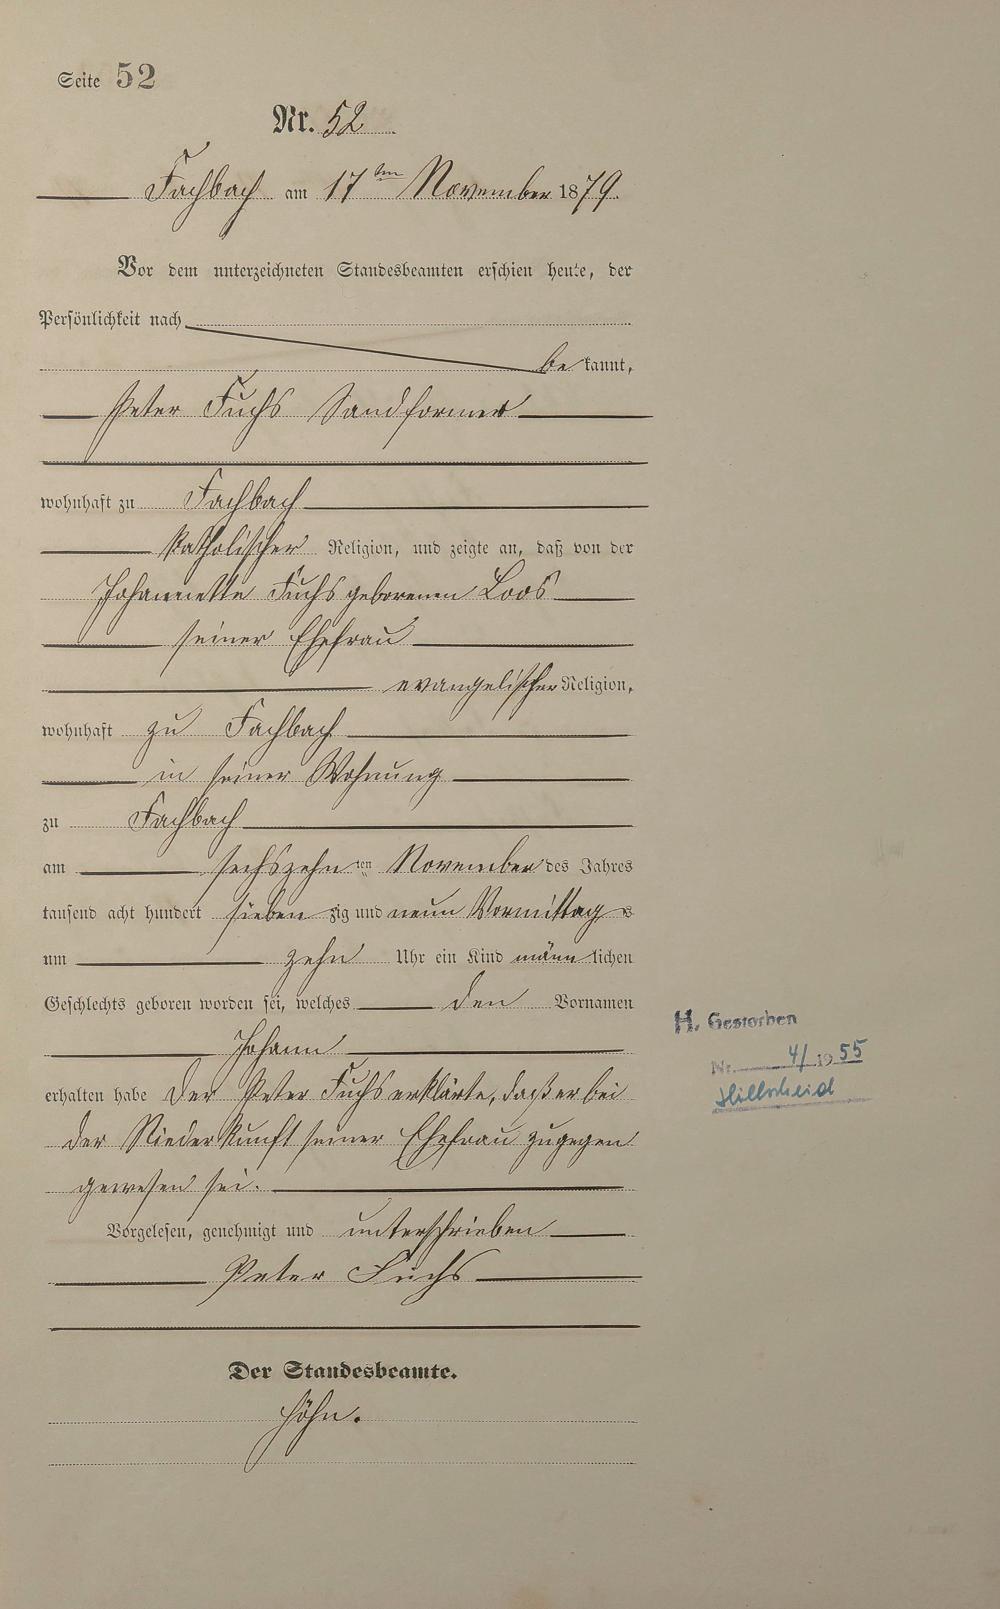 Seite 52
Nr. 52
Fachbach am 17ten November 1879.
Vor dem unterzeichneten Standesbeamten erschien heute, der
Persönlichkeit nach
bekannt,
Peter Fuchs Sandformer
wohnhaft zu Fachbach
katholischer Religion, und zeigte an, daß von der
Johannette Fuchs geborenen Loos
seiner Ehefrau
evangelischer Religion,
wohnhaft zu Fachbach
in seiner Wohnung
zu Fachbach
am sechszehnten November des Jahres
tausend acht hundert siebenzig und neun Vormittags
um zehn Uhr ein Kind männlichen
Geschlechts geboren worden sei, welches den Vornamen
Johann
erhalten habe Der Peter Fuchs erklärte, daß er bei
der Niederkunft seiner Ehefrau zugegen
gewesen sei.
Vorgelesen, genehmigt und unterschrieben
Peter Fuchs
Der Standesbeamte.
Höhn.
H. Gestorben
Nr. 4/1955
Hillscheid